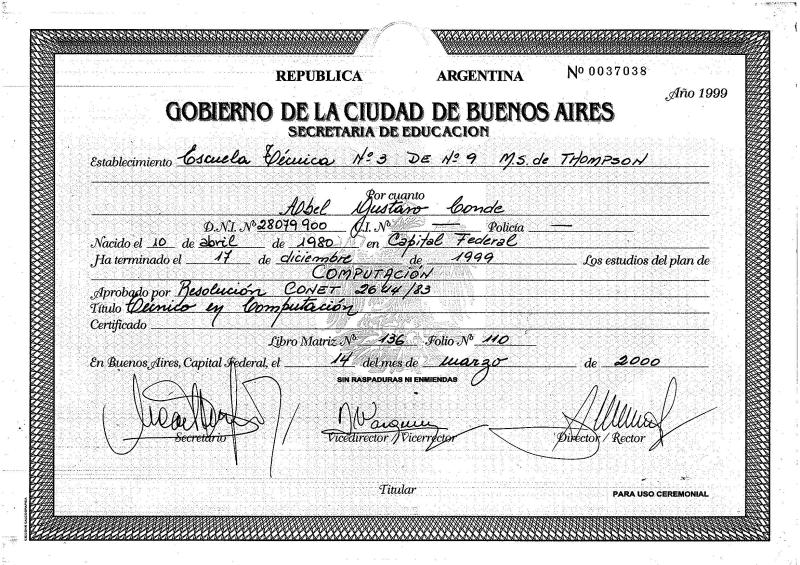 REPUBLICA ARGENTINA Nº 0037038
Año 1999
GOBIERNO DE LA CIUDAD DE BUENOS AIRES
SECRETARIA DE EDUCACION
Establecimiento Escuela Técnica Nº 3 DE Nº 9 M.S. de THOMPSON
Por cuanto
Abel Gustavo Conde
D.N.I. Nº 28079900 C.I. Nº — Policía —
Nacido el 10 de abril de 1980 en Capital Federal
Ha terminado el 17 de diciembre de 1999 Los estudios del plan de
COMPUTACIÓN
Aprobado por Resolución CONET 2644/83
Título Técnico en Computación
Certificado
Libro Matriz Nº 136 Folio Nº 110
En Buenos Aires, Capital Federal, el 14 del mes de marzo de 2000
SIN RASPADURAS NI ENMIENDAS
Secretario Vicedirector / Vicerrector Director / Rector
Titular
PARA USO CEREMONIAL